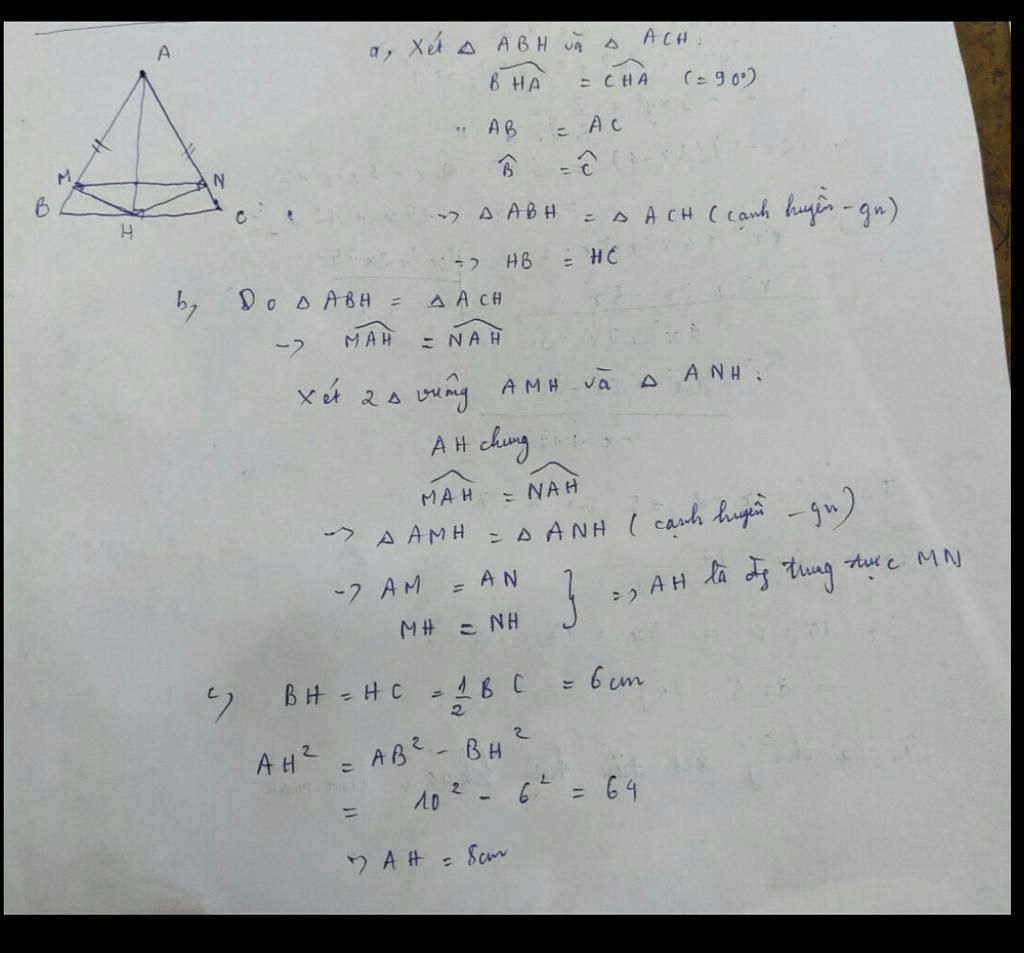 A
M
N
B
C
H
a, Xét △ ABH và △ ACH:
BHA = CHA (= 90°)
AB = AC
B̂ = Ĉ
→ △ ABH = △ ACH (cạnh huyền - gn)
→ HB = HC
b, Do △ ABH = △ ACH
→ MAH = NAH
Xét 2△ vuông AMH và △ ANH:
AH chung
MAH = NAH
→ △ AMH = △ ANH (cạnh huyền - gn)
→ AM = AN
MH = NH } => AH là đg trung trực MN
c, BH = HC = 1/2 BC = 6cm
AH² = AB² - BH²
= 10² - 6² = 64
→ AH = 8cm